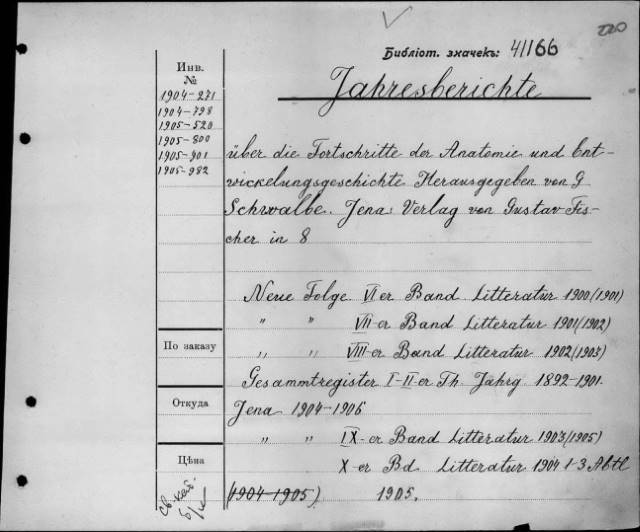 220
Библіот. значекъ: 41166
Инв.
№
1904-271
1904-798
1905-520
1905-800
1905-901
1905-982
Jahresberichte
über die Fortschritte der Anatomie und Ent-
wickelungsgeschichte Herausgegeben von G
Schwalbe. Jena: Verlag von Gustav Fis-
cher in 8
Neue Folge VI-er Band Litteratur 1900/(1901)
" " VII-er Band Litteratur 1901/(1902)
По заказу
" " VIII-er Band Litteratur 1902/(1903)
Gesammtregister I-II-er Th. Jahrg. 1892-1901.
Откуда
Jena 1904-1906
" " IX-er Band Litteratur 1903/(1905)
Цѣна
X-er Bd Litteratur 1904 1-3 Abtl
(1904-1905) 1905.